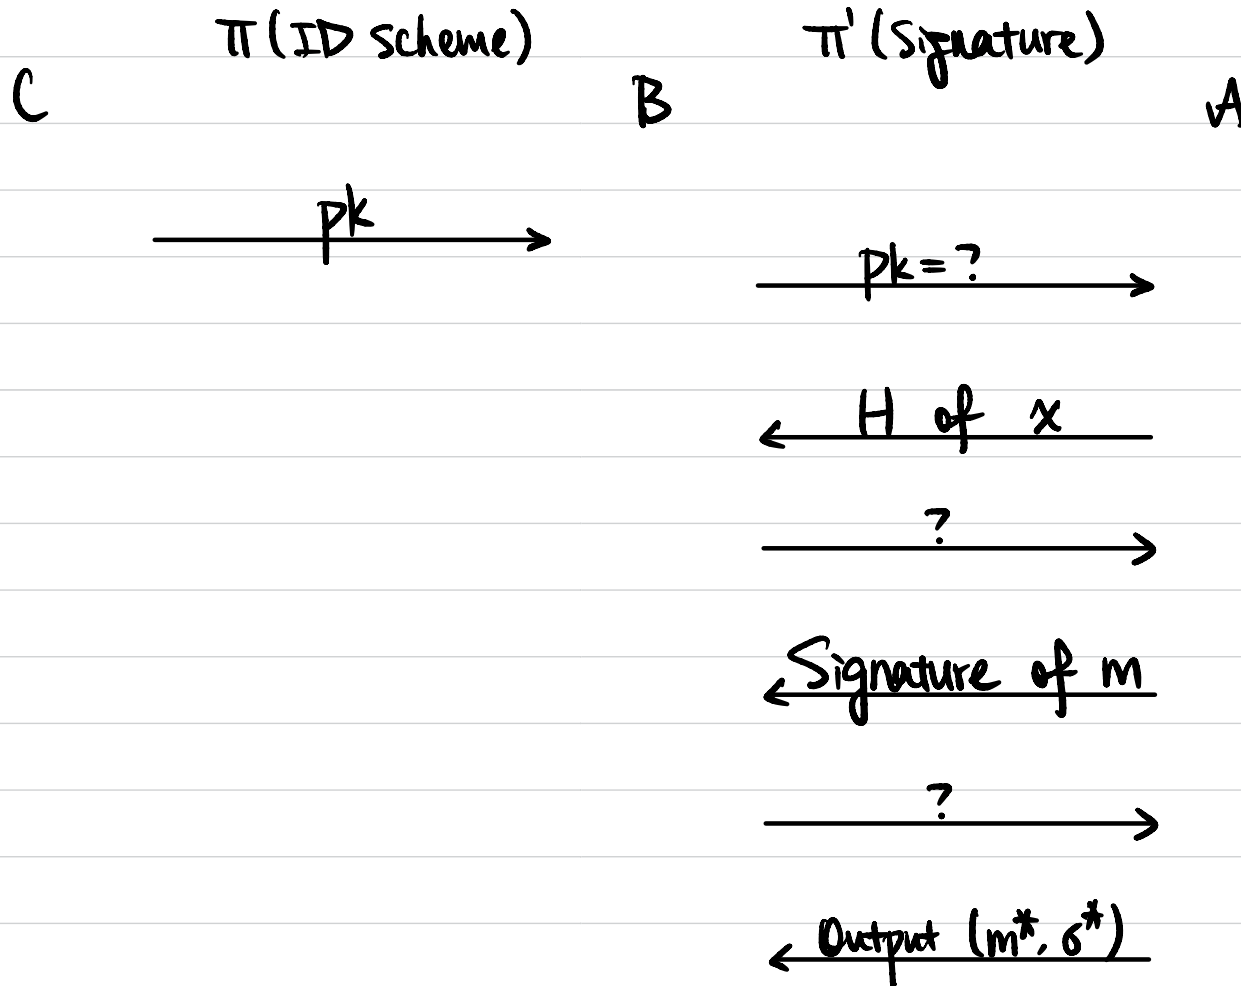 π (ID scheme) π' (Signature)
C B A
pk
pk = ?
H of x
?
Signature of m
?
Output (m*, σ*)